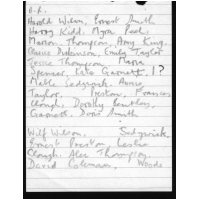 B.R.
Harold Wilson, Ernest Smith
Harry Kidd, Myra Peel,
Marion Thompson, Amy King.
Clarice Robinson, Emily Taylor
Jessie Thompson, Marie
Spencer, Garnett, 1?
Mable Sedgwick, Annie
Taylor, Preston, Frances
Clough, Dorothy Bentley,
Garnett, Doris Smith
Wilf Wilson, Sedgwick,
Ernest Preston, Leslie
Clough, Alec Thompson,
David Coleman, Woods